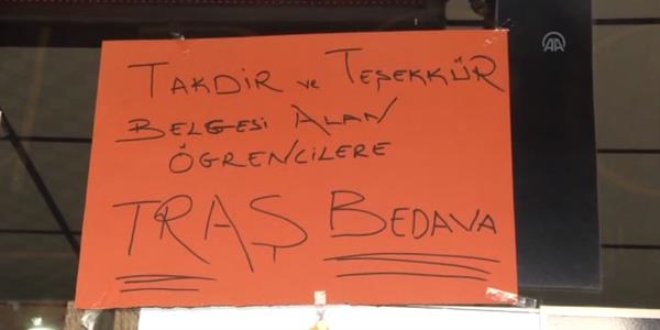 TAKDİR ve TEŞEKKÜR
BELGESİ ALAN
ÖĞRENCİLERE
TRAŞ BEDAVA
AA